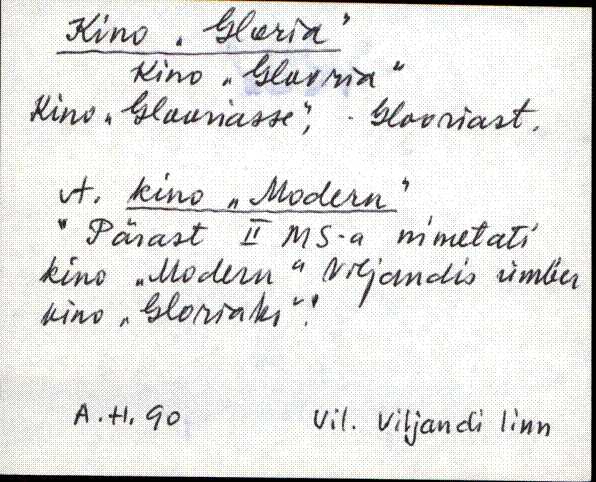 Kino „Gloria”
Kino „Glooria“
Kino „Glooriasse”, - Glooriast.
vt. kino „Modern”
"Pärast II MS-a nimetati
kino „Modern“ Viljandis ümber
kino „Gloriaks“."
A.H. 90
Vil. Viljandi linn